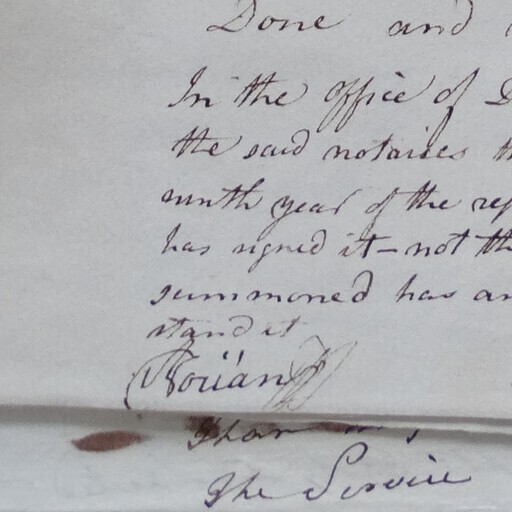 Done and
In the office of D
the said notaries th
ninth year of the rep
has signed it – not the
summoned has an
stand it
The Service